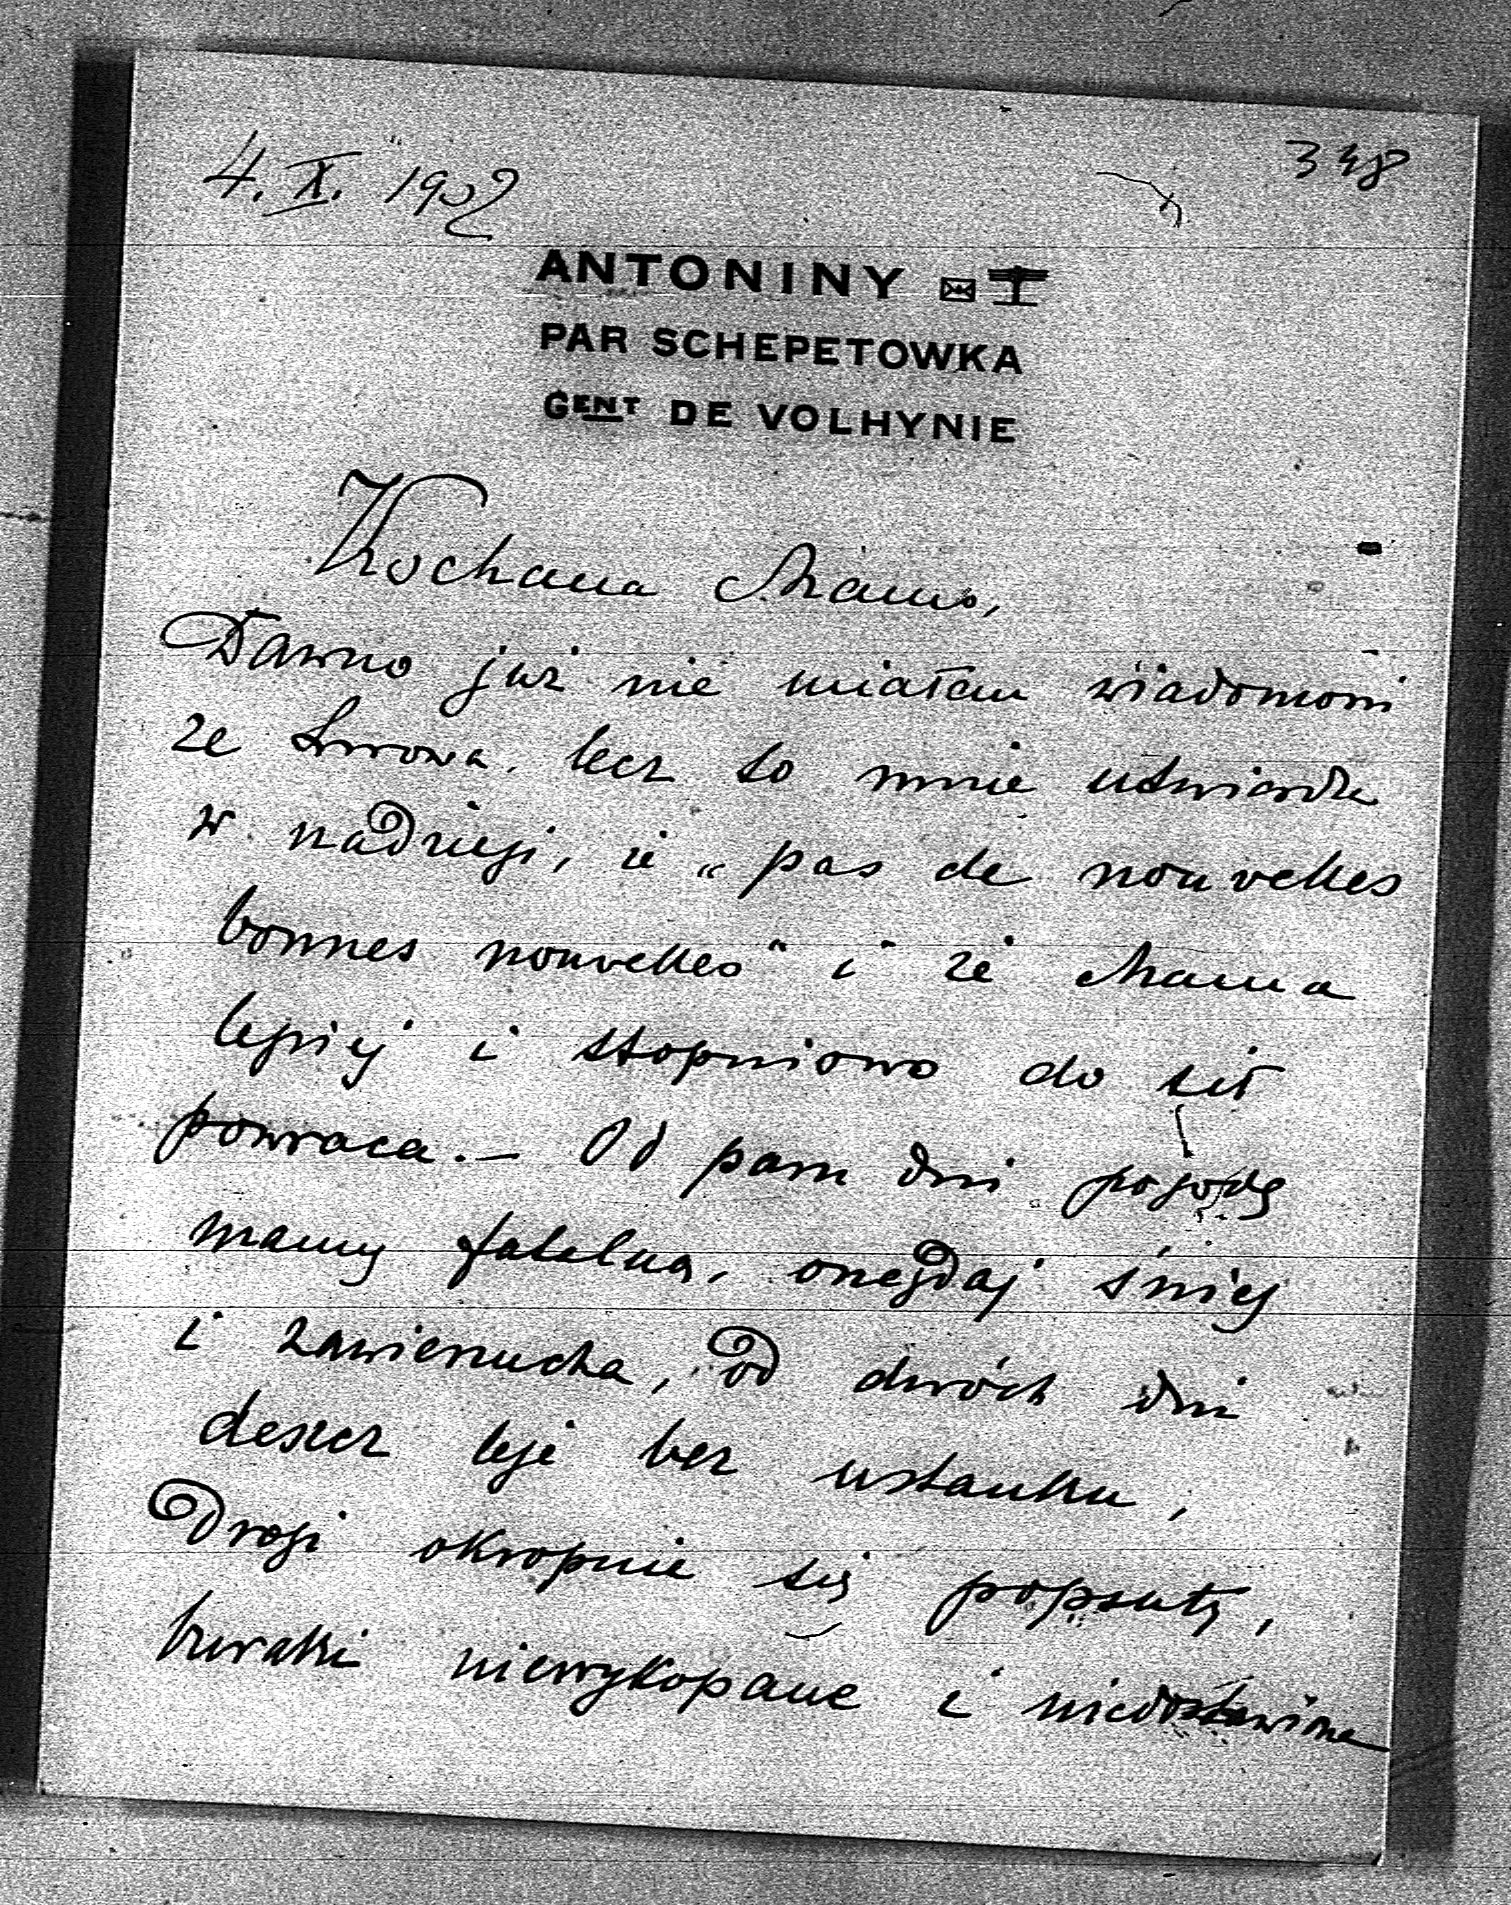 348
4. X. 1902
ANTONINY
PAR SCHEPETOWKA
GENT DE VOLHYNIE
Kochana Mamo,
Dawno już nie miałem wiadomości
ze Lwowa, lecz to mnie utwierdza
w nadzieji, że „pas de nouvelles
bonnes nouvelles" i że Mama
lepiej i stopniowo do sił
powraca. — Od paru dni pogodę
mamy fatalną, onegdaj śnieg
i zawierucha, od dwóch dni
deszcz leje bez ustanku,
Drogi okropnie się popsuły,
buraki niewykopane i niedostawione